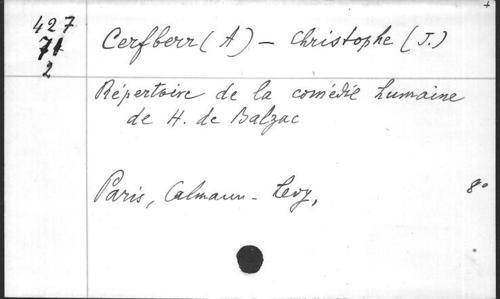 427
71
2
Cerfberr (A) - Christophe (J.)
Répertoire de la comédie humaine
de H. de Balzac
Paris, Calmann-Levy,
8°